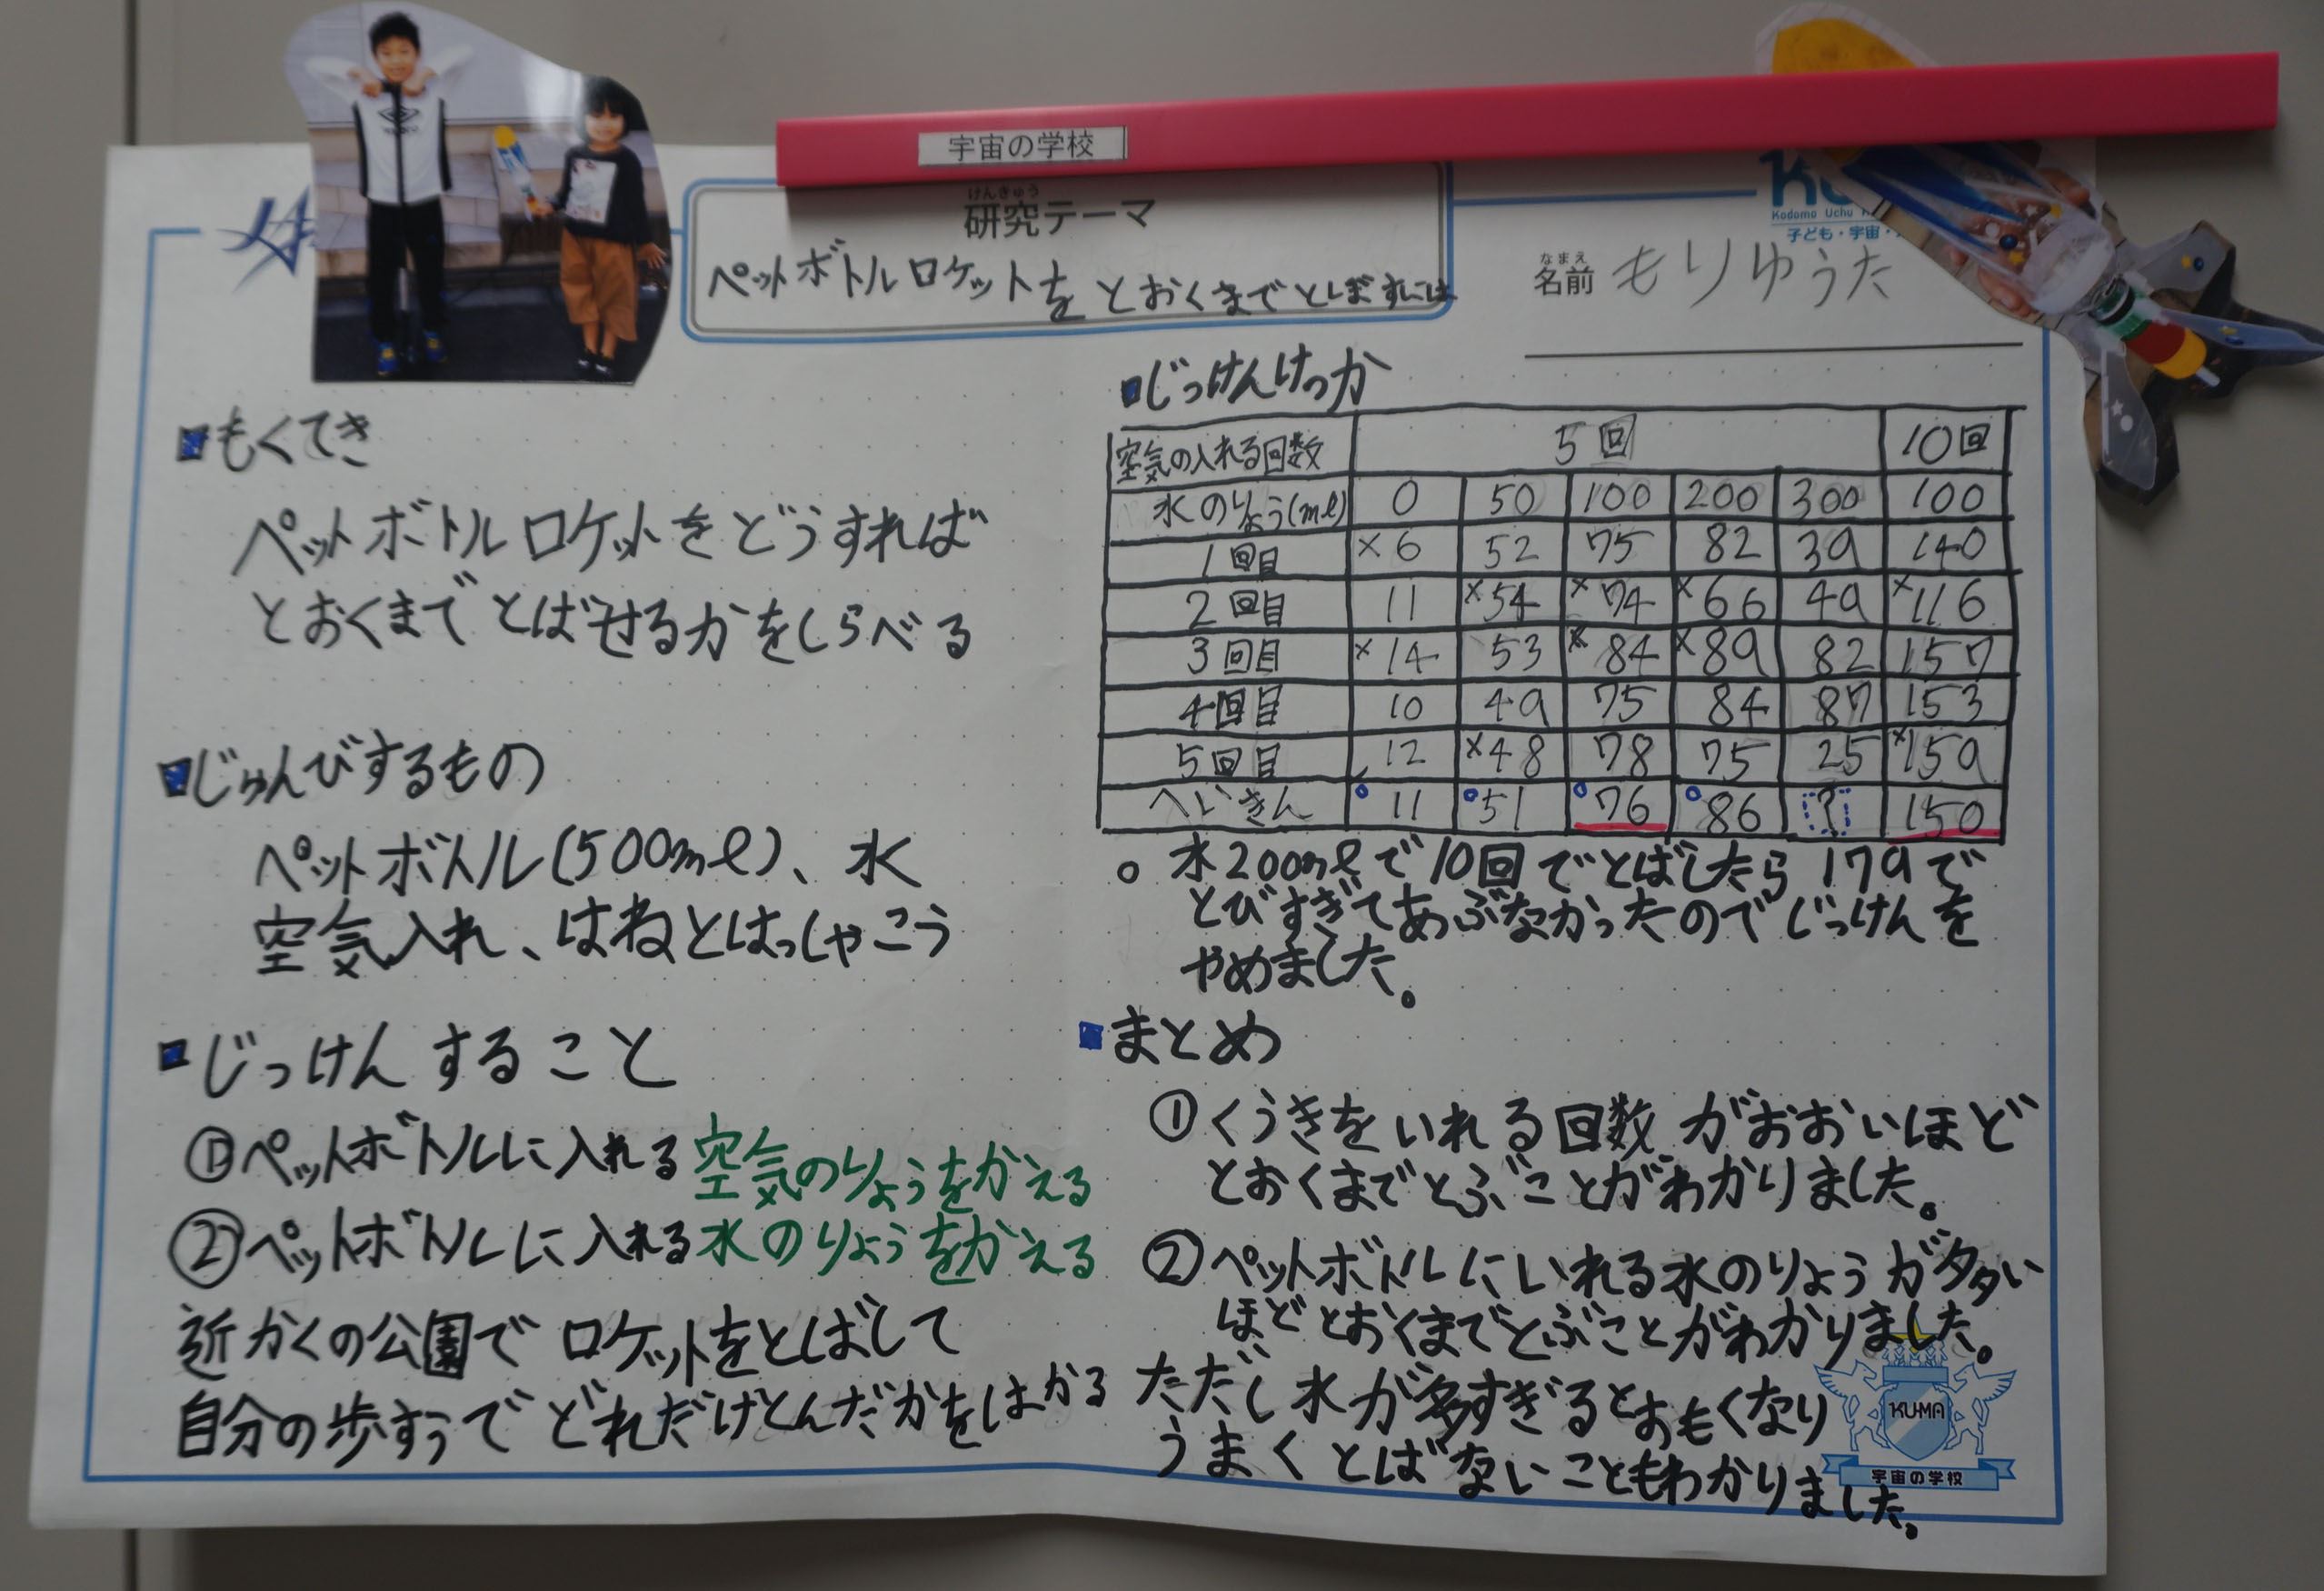 宇宙の学校
けんきゅう
研究テーマ
ペットボトルロケットを とおくまでとばすには
Kodomo Uchu
子ども・宇宙・
なまえ
名前 もりゆうた
■もくてき
ペットボトルロケットをどうすれば
とおくまでとばせるかをしらべる
■じゅんびするもの
ペットボトル(500mℓ)、水
空気入れ、はねとはっしゃこう
■じっけんすること
①ペットボトルに入れる空気のりょうをかえる
②ペットボトルに入れる水のりょうをかえる
近かくの公園でロケットをとばして
自分の歩すうでどれだけとんだかをはかる
■じっけんけっか
空気の入れる回数 5回 10回
水のりょう(mℓ) 0 50 100 200 300 100
1回目 ×6 52 75 82 39 140
2回目 11 ×54 ×74 ×66 49 ×116
3回目 ×14 53 ×84 ×89 82 157
4回目 10 49 75 84 87 153
5回目 12 ×48 78 75 25 ×159
へいきん 11 51 76 86 ? 150
○ 水200mℓで10回でとばしたら179で
とびすぎてあぶなかったのでじっけんを
やめました。
■まとめ
①くうきをいれる回数がおおいほど
とおくまでとぶことがわかりました。
②ペットボトルにいれる水のりょうが多い
ほどとおくまでとぶことがわかりました。
ただし水が多すぎるとおもくなり
うまくとばないこともわかりました。
KUMA
宇宙の学校